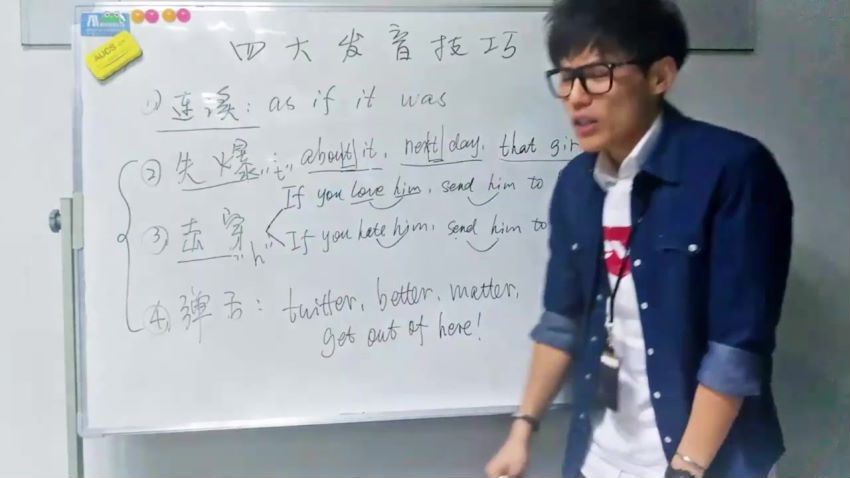 四大发音技巧
① 连读: as if it was
② 失爆 "t" about it, next day, that gir
If you love him, send him to
③ 击穿 "h" If you hate him, send him to
④ 弹舌: twitter, better, matter,
get out of here!
AUCS